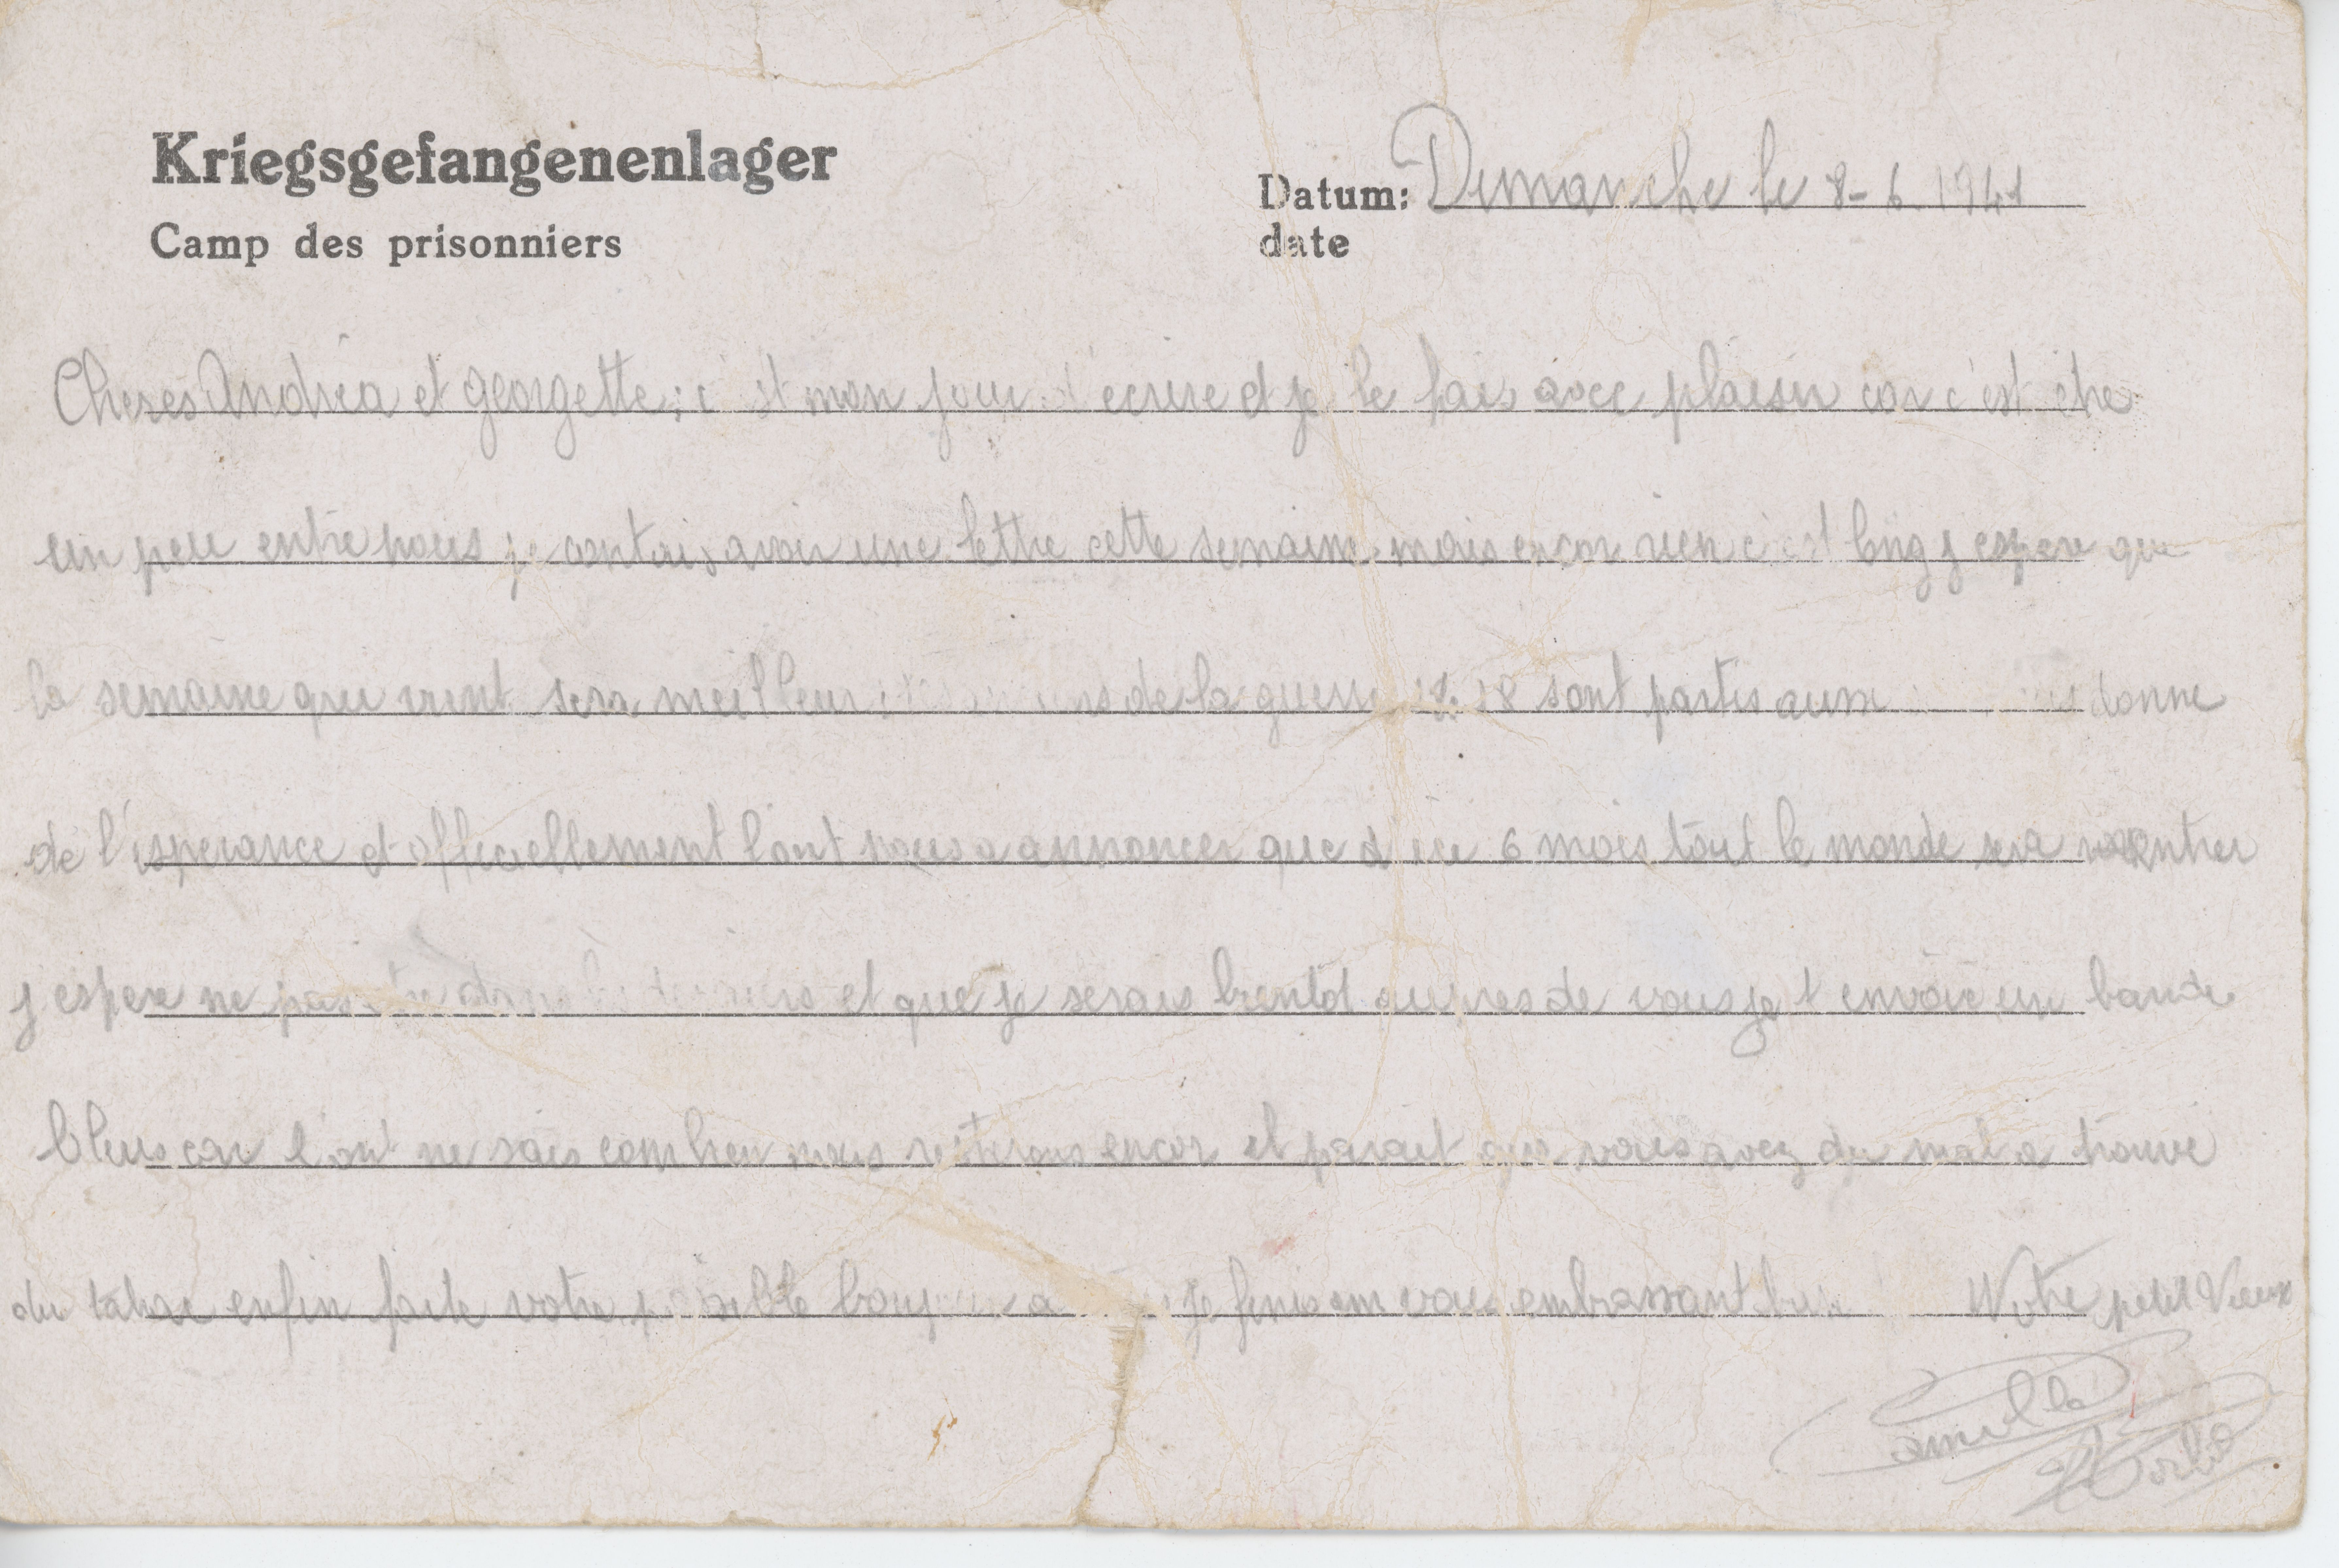 Kriegsgefangenenlager
Camp des prisonniers
Datum: Dimanche le 8-6.1941
date
Cheres Andréa et Georgette; c'est mon jour d'ecrire et je le fais avec plaisir car c'est etre
un peu entre nous je contais avoir une lettre cette semaine mais encor rien c'est long j espere que
la semaine qui vient sera meilleur; de la guerre 18 sont partis aussi donne
de l'esperance et officiellement l'ont nous a annoncer que d ici 6 mois tout le monde sera rentrer
j espere ne pas et que je serais bientot aupres de vous je t envoie un bande
bleus car l'ont ne sais combien nous resterons encor il parait que vous avez du mal a trouve
du tabac enfin faite votre possible je finis en vous embrassant bien Votre petit Vieux
Camille